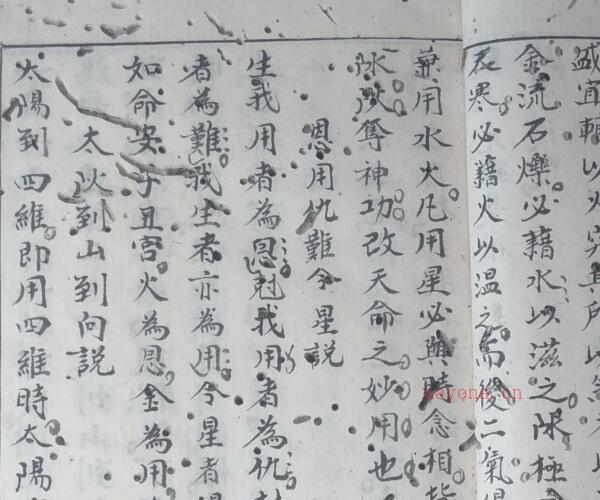 盛宜輔以火
金流石爍必藉水以滋之陰極
衣寒必藉火以温之而後二氣
兼用水火凡用星必與時令相
以奪神功改天命之妙用也
恩用仇難令星説
生我用者為恩尅我用者為仇
者為難我生者亦為用令星者
如命安子丑宮火為恩金為用
太陽到山到向説
太陽到四維即用四維時太陽
nayona.cn